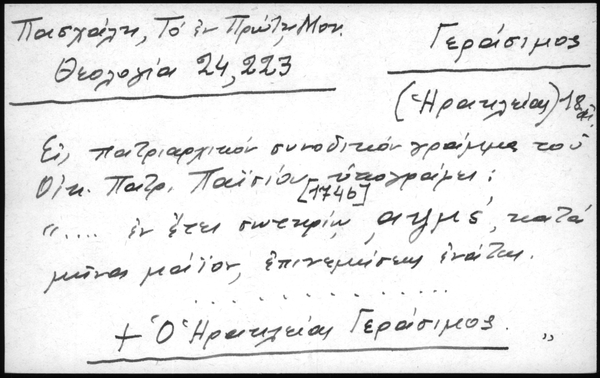 Πασχάλη, Τό ἐν Πρώτῃ Μον.
Θεολογία 24, 223
Γεράσιμος
(Ἡρακλείας) 18 αἰ.
Εἰς πατριαρχικόν συνοδικόν γράμμα τοῦ
Οἰκ. Πατρ. Παϊσίου ὑπογράφει:
[1746]
".... ἐν ἔτει σωτηρίῳ ͵αψμς΄, κατά
μῆνα μάϊον, ἐπινεμήσεως ἐνάτης.
. . . . . . . . . . . . . .
+ Ὁ Ἡρακλείας Γεράσιμος. "